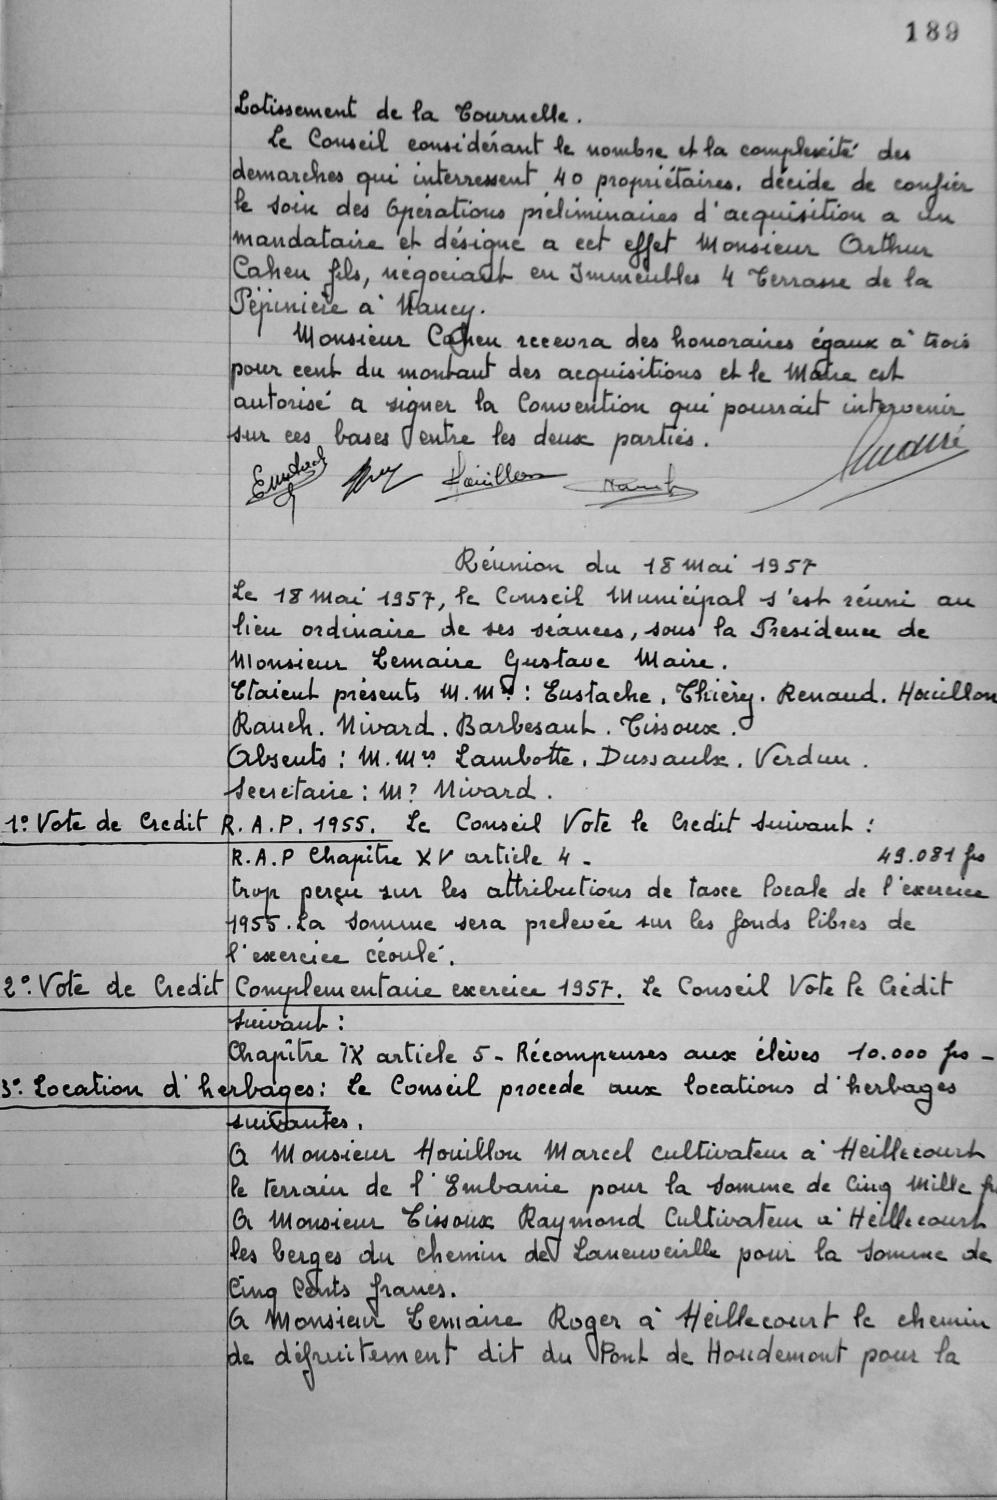 189
Lotissement de la Tournelle.
Le Conseil considérant le nombre et la complexité des
demarches qui interressent 40 propriétaires, décide de confier
le soin des Opérations préliminaires d'acquisition a un
mandataire et désigne a cet effet Monsieur Arthur
Cahen fils, négociant en Immeubles 4 Terrasse de la
Pépinière à Nancy.
Monsieur Cahen recevra des honoraires égaux à trois
pour cent du montant des acquisitions et le Maire est
autorisé a signer la Convention qui pourrait intervenir
sur ces bases entre les deux parties.
Houillon
Réunion du 18 Mai 1957
Le 18 Mai 1957, le Conseil Municipal s'est réuni au
lieu ordinaire de ses séances, sous la Presidence de
Monsieur Lemaire Gustave Maire.
Etaient présents M.Mrs : Eustache. Thiéry. Renaud. Houillon
Rauch. Nivard. Barbesant. Tissoux.
Absents : M.Mrs Lambotte. Dussaulx. Verdun.
Secretaire : Mr Nivard.
1º. Vote de Credit R.A.P. 1955. Le Conseil Vote le Credit suivant :
R.A.P Chapître XV article 4 - 49.081 frs
trop perçu sur les attributions de taxe locale de l'exercice
1955. La somme sera prelevée sur les fonds libres de
l'exercice céoulé.
2º. Vote de Credit Complementaire exercice 1957. Le Conseil Vote le Crédit
suivant :
Chapître IX article 5 - Récompenses aux élèves 10.000 frs -
3º. Location d'herbages : Le Conseil procede aux locations d'herbages
suivantes.
A Monsieur Houillon Marcel cultivateur à Heillecourt
le terrain de l'Embanie pour la somme de Cinq Mille fr
A Monsieur Tissoux Raymond Cultivateur à Heillecourt
les berges du chemin de Laneuveville pour la somme de
Cinq Cents francs.
A Monsieur Lemaire Roger à Heillecourt le chemin
de défruitement dit du Pont de Houdemont pour la